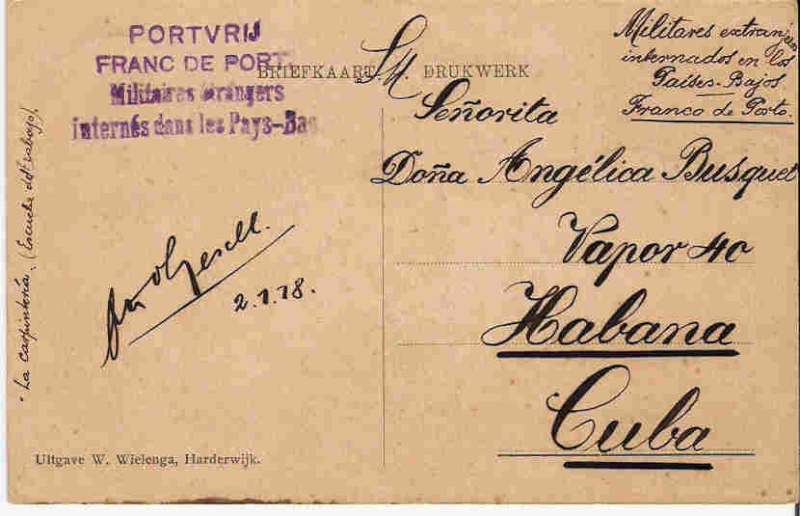 PORTVRIJ
FRANC DE PORT
Militaires étrangers
internés dans les Pays-Bas
BRIEFKAART DRUKWERK
Militares extranjeros
internados en los
Países-Bajos
Franco de Porto.
Señorita
Doña Angélica Busquet
Vapor 40
Habana
Cuba
2.1.18.
"La carpintería" (Escuela del trabajo).
Uitgave W. Wielenga, Harderwijk.